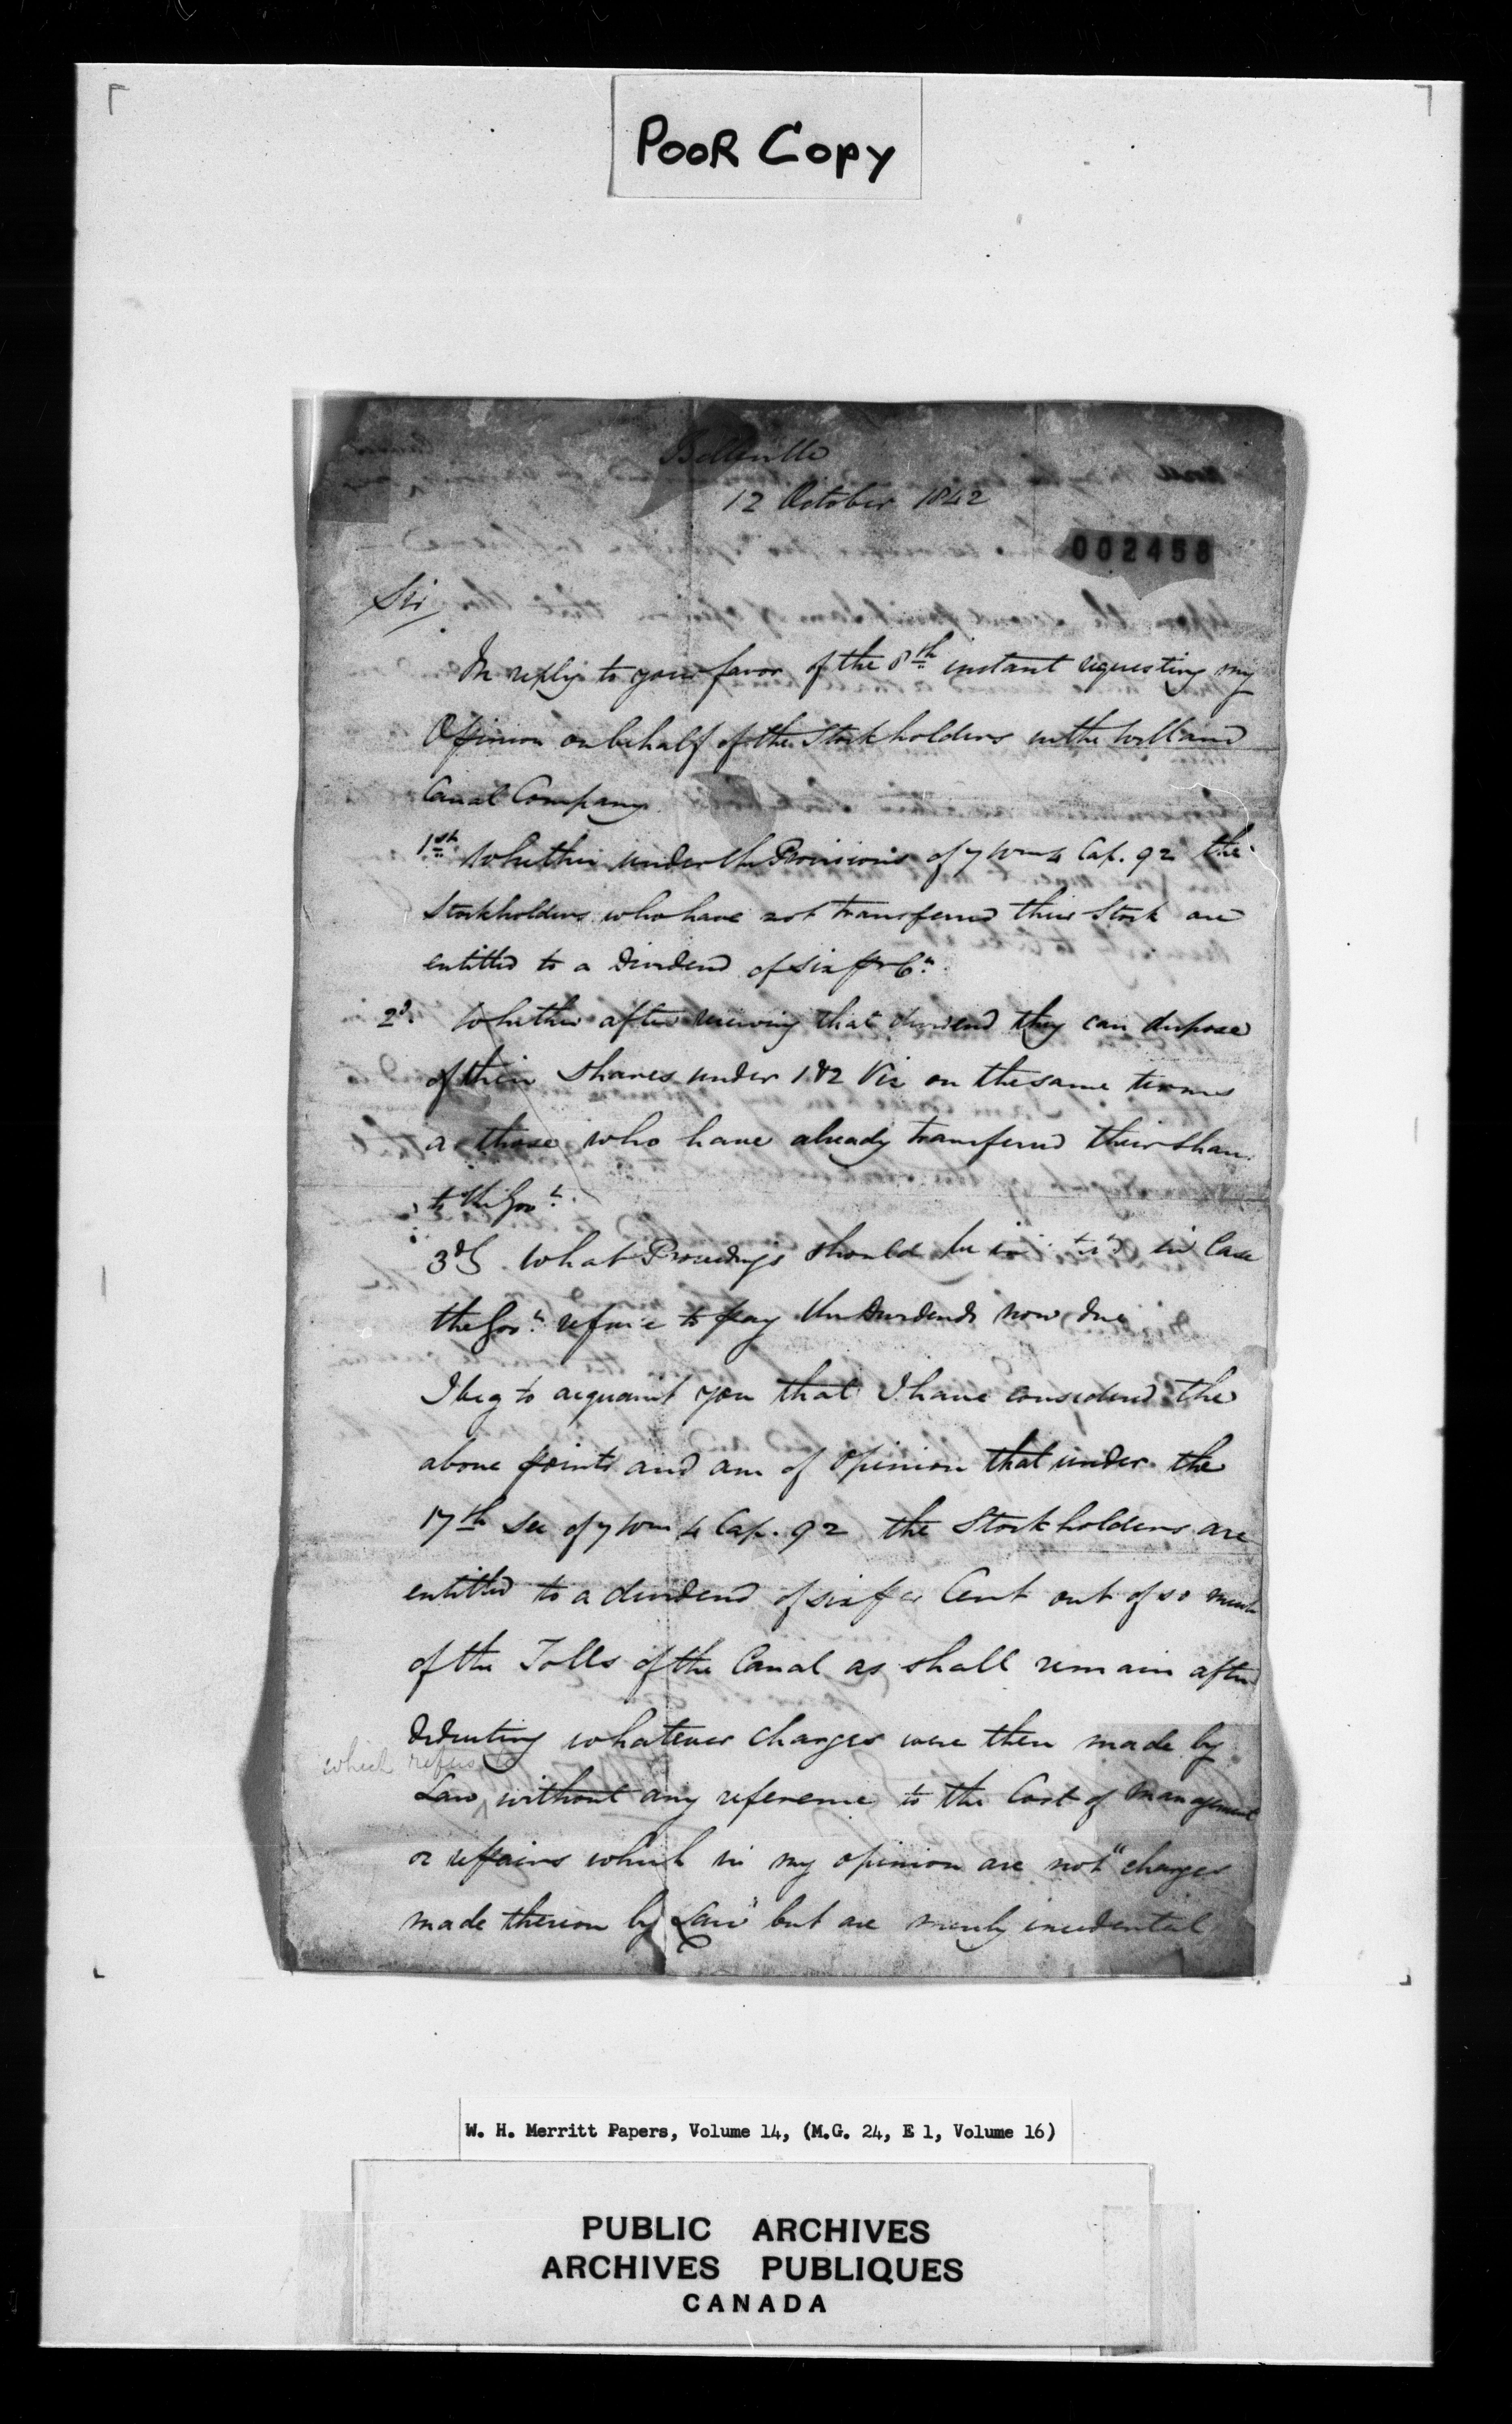 POOR COPY
Belleville
12 October 1842
002458
Sir
In reply to your favor of the 8th instant requesting my
Opinion on behalf of the Stockholders in the Welland
Canal Company
1st Whether under the Provisions of 7 Wm 4 Cap. 92 the
Stockholders who have not transferred their Stock are
entitled to a Dividend of six pr Ct.
2d. Whether after receiving that dividend they can dispose
of their Shares under 1 & 2 Vic on the same terms
as those who have already transferred their Shares
to the Govt.
3d What Proceedings should be in case
the Govt. refuse to pay the Dividends now due
I beg to acquaint you that I have considered the
above points and am of Opinion that under the
17th Sec of 7 Wm 4 Cap. 92 the Stockholders are
entitled to a dividend of six per Cent out of so much
of the Tolls of the Canal as shall remain after
deducting whatever charges were then made by
which refers to
Law, without any reference to the Cost of Management
or repairs which in my opinion are not "charges
made thereon by Law" but are merely incidental
W. H. Merritt Papers, Volume 14, (M.G. 24, E 1, Volume 16)
PUBLIC ARCHIVES
ARCHIVES PUBLIQUES
CANADA